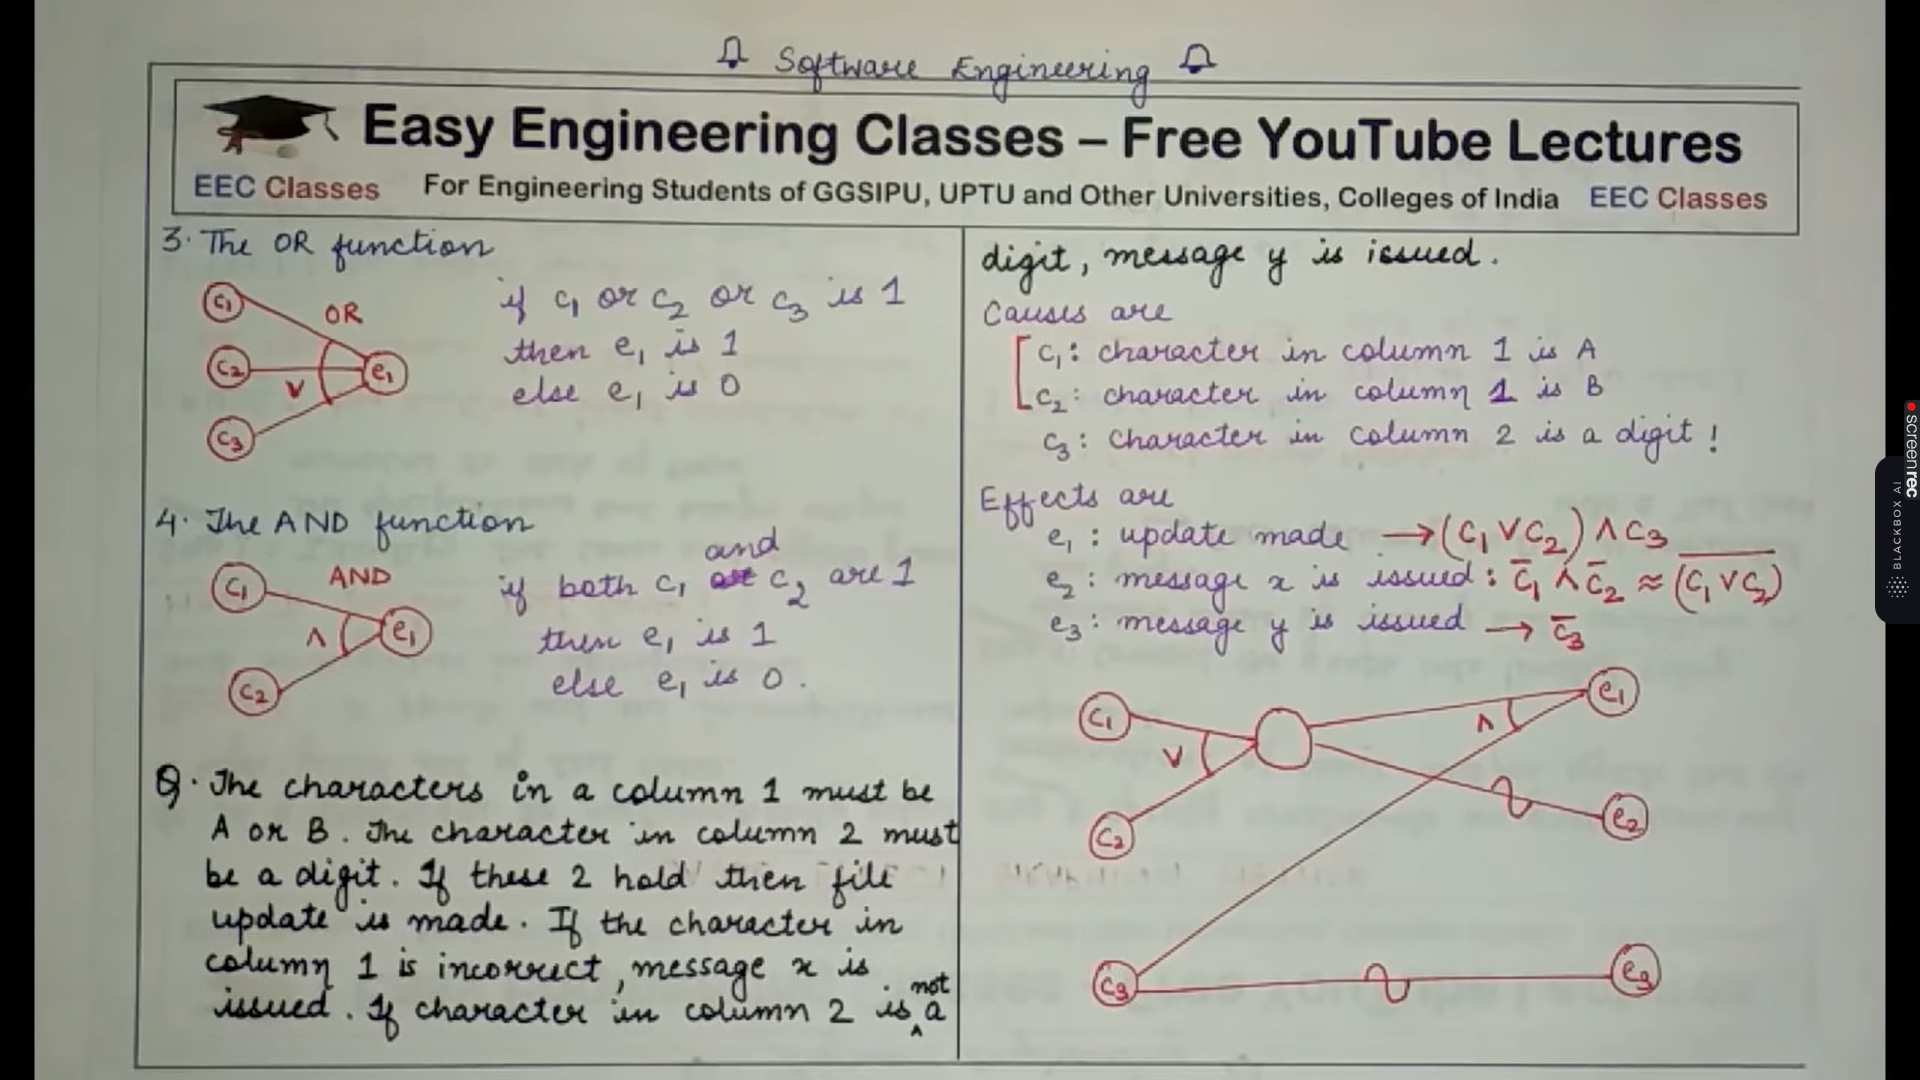 Software Engineering
Easy Engineering Classes – Free YouTube Lectures
EEC Classes For Engineering Students of GGSIPU, UPTU and Other Universities, Colleges of India EEC Classes
3. The OR function
c1
OR
if c1 or c2 or c3 is 1
then e1 is 1
c2
e1
V
else e1 is 0
c3
4. The AND function
and
c1
AND
if both c1 c2 are 1
Λ
e1
then e1 is 1
c2
else e1 is 0.
Q. The characters in a column 1 must be
A or B. The character in column 2 must
be a digit. If these 2 hold then file
update is made. If the character in
column 1 is incorrect, message x is
issued. If character in column 2 is not a
digit, message y is issued.
Causes are
c1: character in column 1 is A
c2: character in column 1 is B
c3: character in column 2 is a digit!
Effects are
e1: update made → (C1 V C2) Λ C3
e2: message x is issued: C̄1 Λ C̄2 ≈ \overline{(C1 V C2)}
e3: message y is issued → C̄3
c1
e1
V
Λ
c2
e2
c3
e3
screenrec
BLACKBOX AI